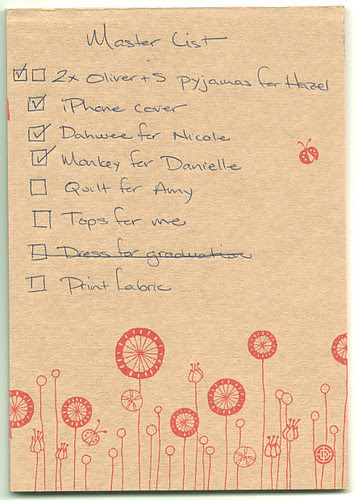 Master List
2x Oliver + S pyjamas for Hazel
iPhone cover
Dahwee for Nicole
Monkey for Danielle
Quilt for Amy
Tops for me
Dress for graduation
Print fabric